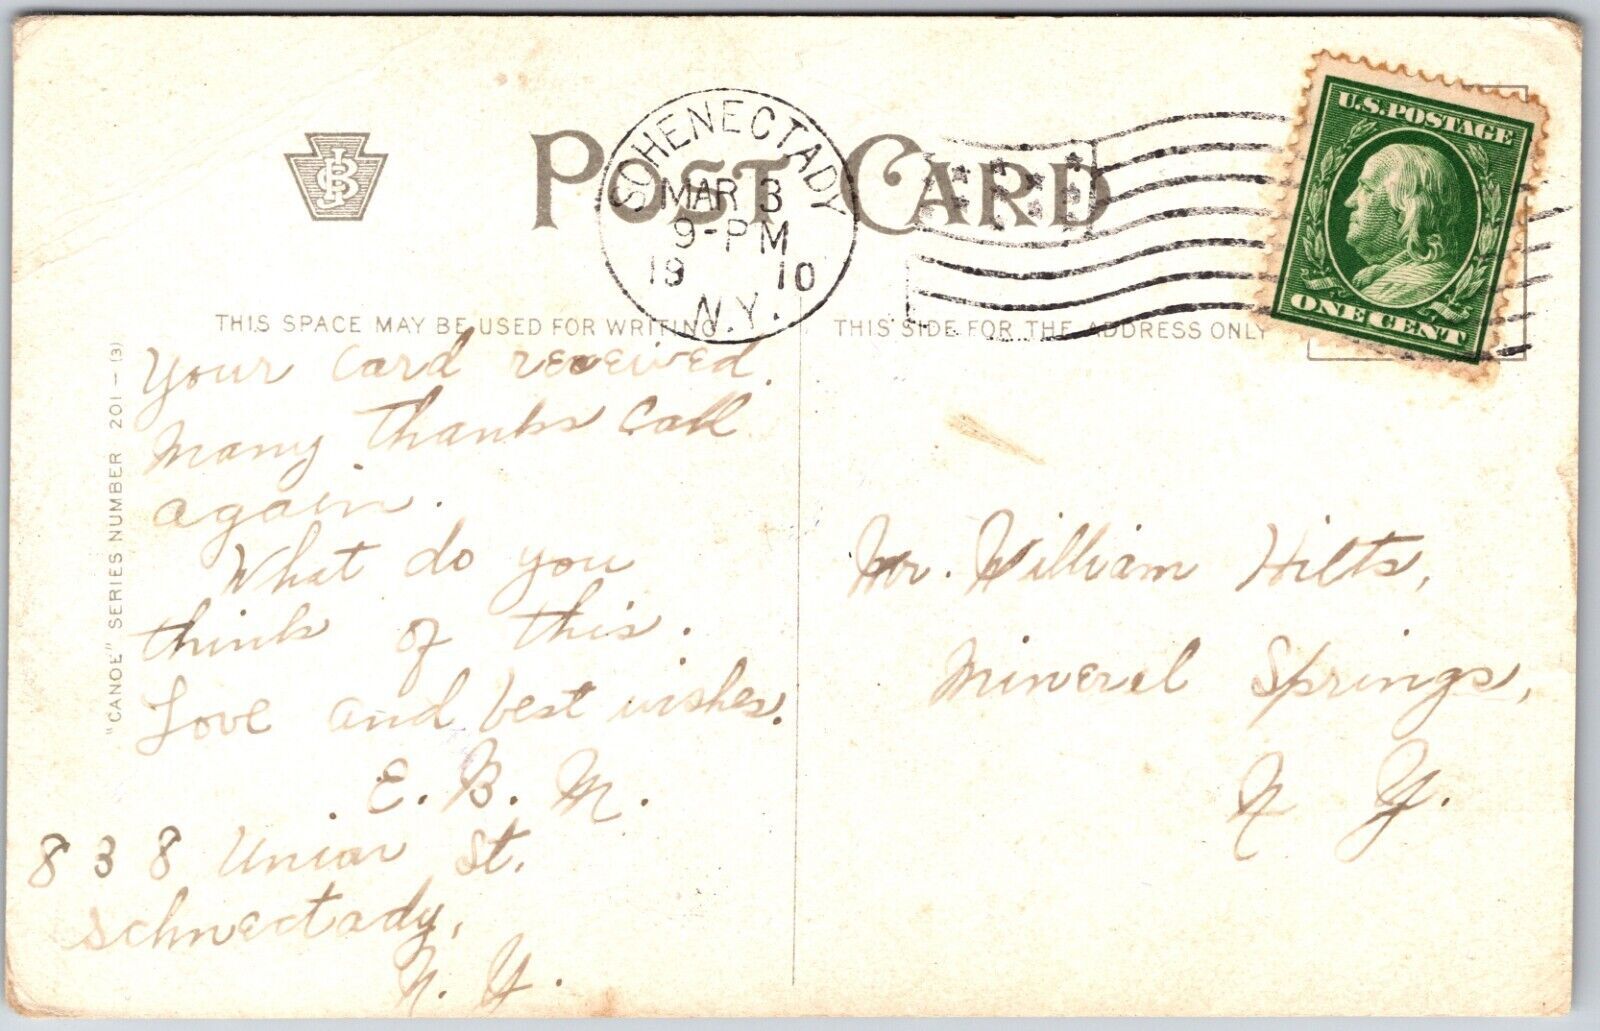 POST CARD
SCHENECTADY
MAR 3
9-PM
19 10
N.Y.
U.S. POSTAGE
ONE CENT
JSCB
THIS SPACE MAY BE USED FOR WRITING
THIS SIDE FOR THE ADDRESS ONLY
"CANOE" SERIES NUMBER 201-(3)
Your card received.
Many thanks call
again.
What do you
think of this.
Love and best wishes.
E. B. M.
838 Union St.
Schnectady,
N. Y.
Mr. William Hilts,
Mineral Springs,
N Y.